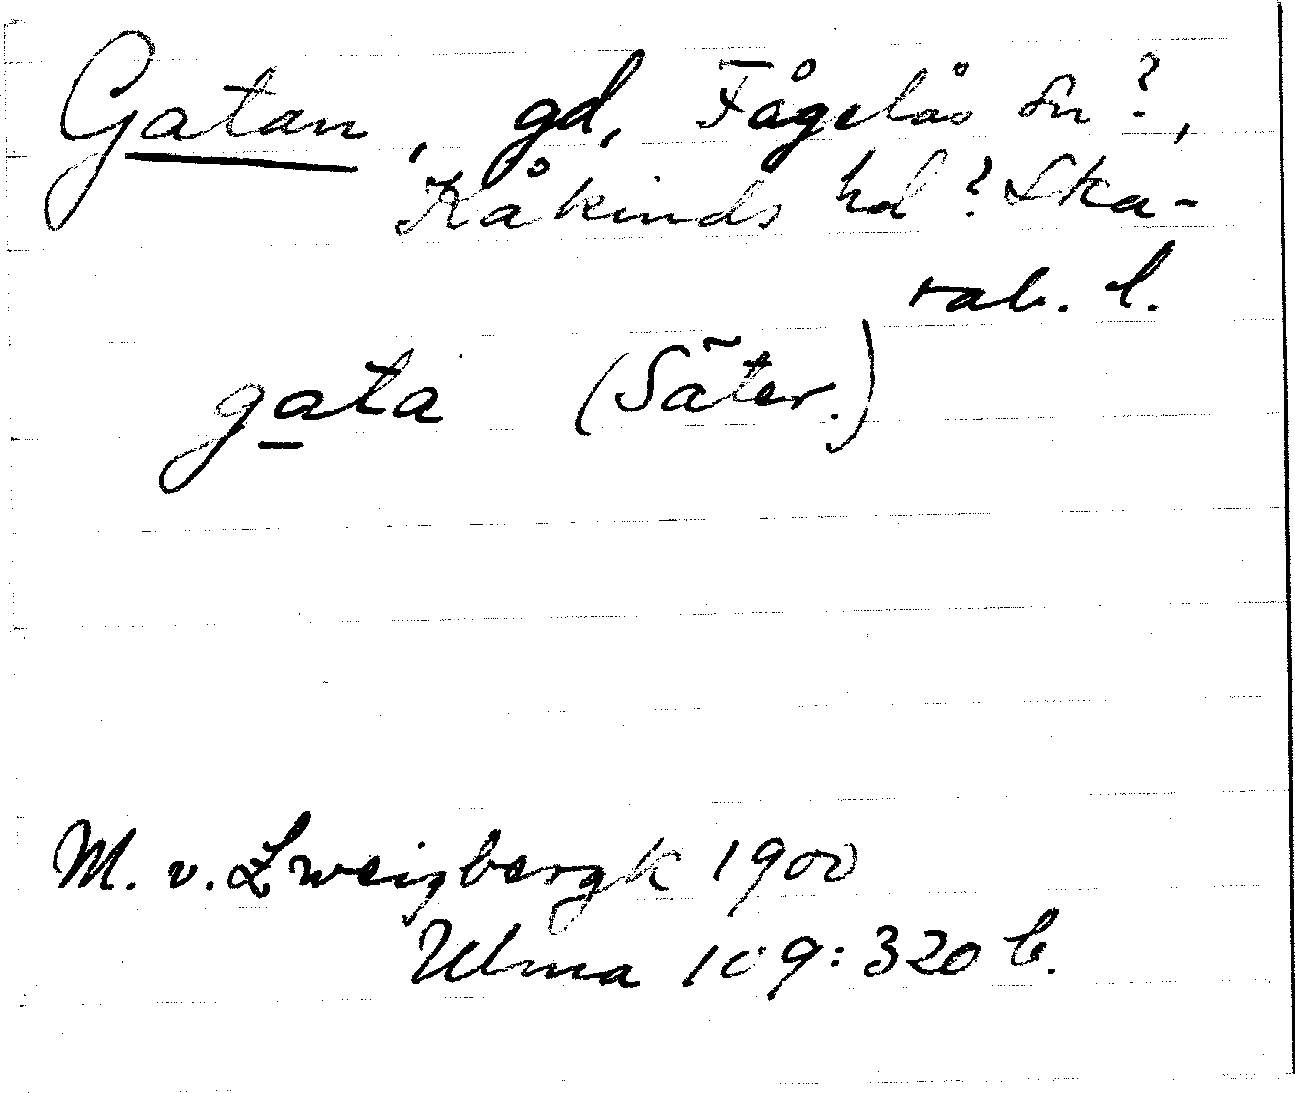 Gatan, gd, Fågelås sn?,
Kåkinds hd? Ska-
rab. l.
gata (Säter.)
M. v. Zweigbergk 1900
Ulma 109:320 b.